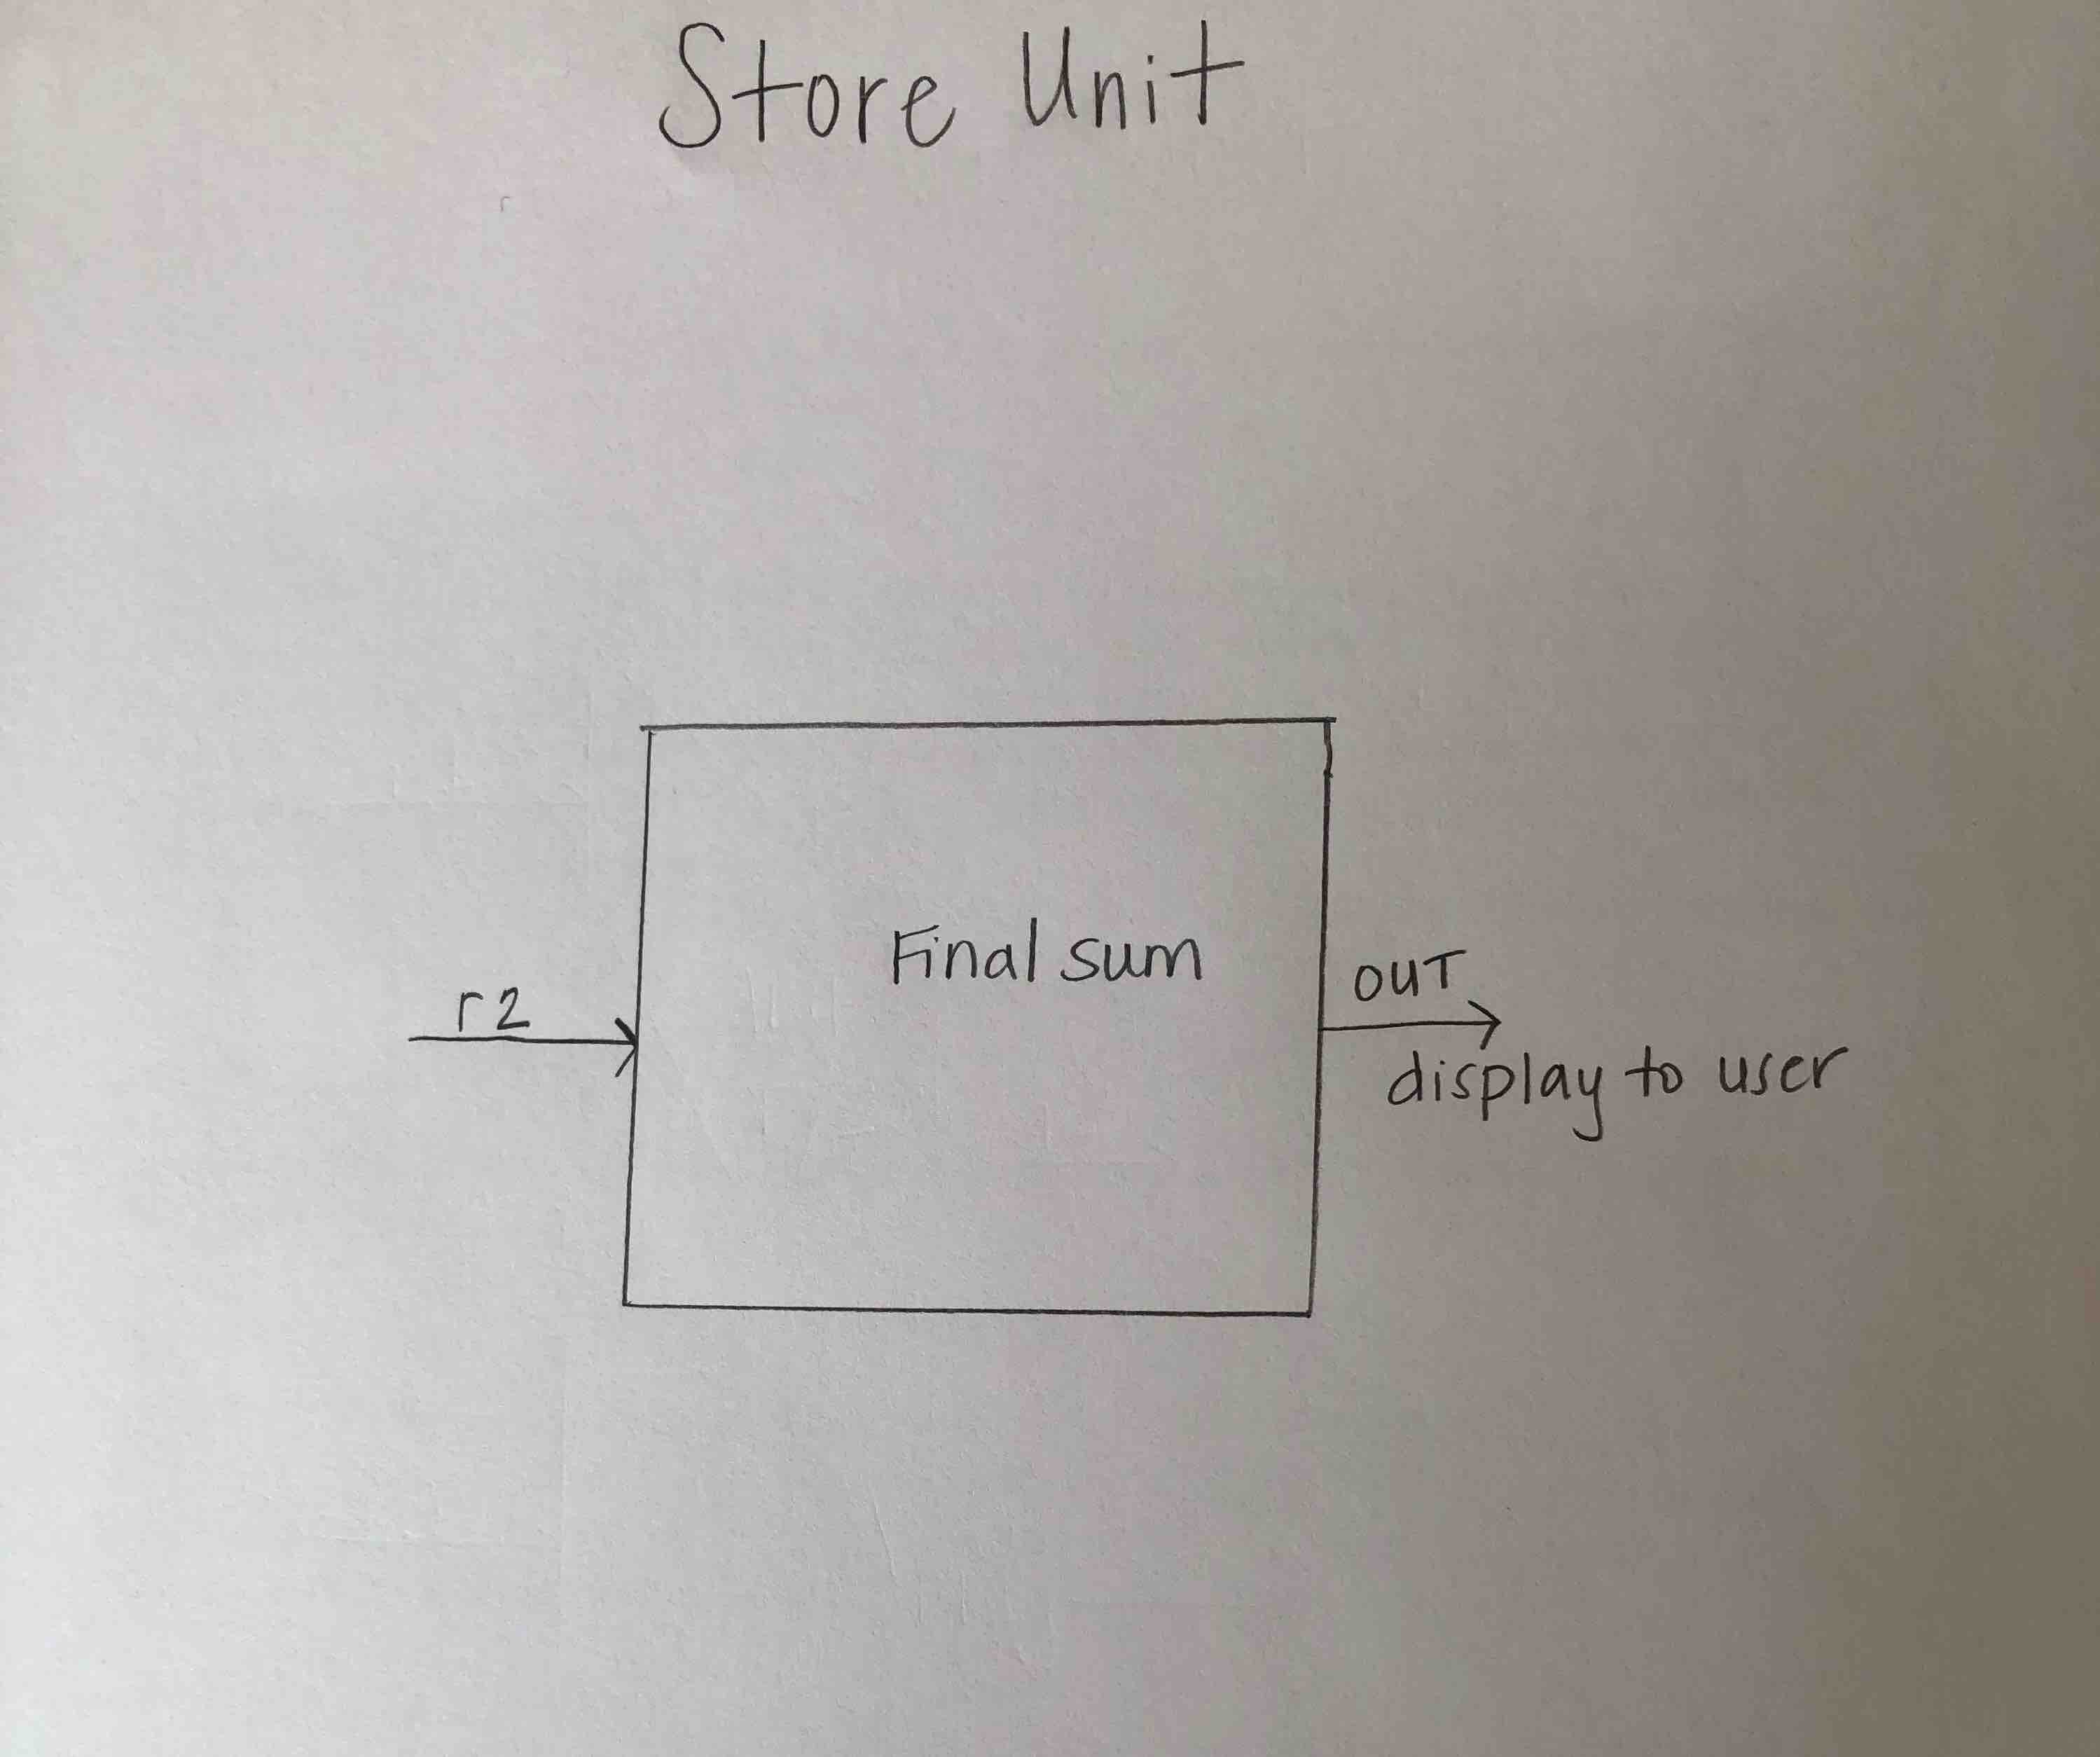 Store Unit
Final sum
r2
OUT
display to user